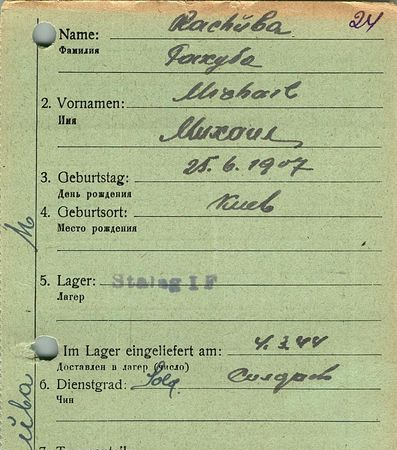 24
Name:
Фамилия
2. Vornamen: Michael
Имя Михоил
25.6.1907
3. Geburtstag:
День рождения
4. Geburtsort: Киев
Место рождения
5. Lager: Stalag I F
Лагер
Im Lager eingeliefert am: 4.3.44
Доставлен в лагер (число)
6. Dienstgrad: Sold. Солдат
Чин